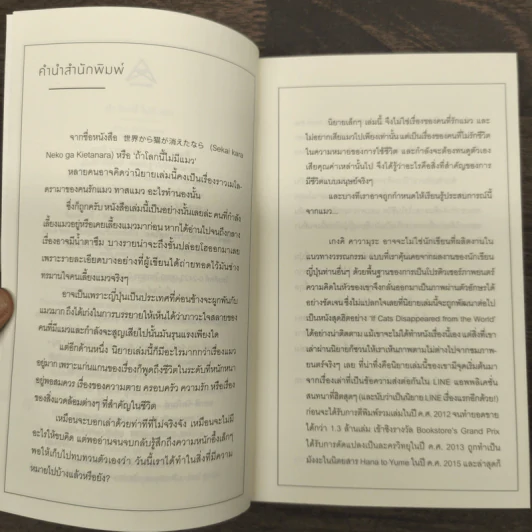 คำนำสำนักพิมพ์
จากชื่อหนังสือ 世界から猫が消えたなら (Sekai kara
Neko ga Kietanara) หรือ ‘ถ้าโลกนี้ไม่มีแมว’
หลายคนอาจคิดว่านิยายเล่มนี้คงเป็นเรื่องราวเมโล-
ดรามาของคนรักแมว ทาสแมว อะไรทำนองนั้น
ซึ่งก็ถูกครับ หนังสือเล่มนี้เป็นอย่างนั้นเลยล่ะ คนที่กำลัง
เลี้ยงแมวอยู่หรือเคยเลี้ยงแมวมาก่อน หากได้อ่านไปจนถึงกลาง
เรื่องอาจมีน้ำตาซึม บางรายน่าจะถึงขั้นปล่อยโฮออกมาเลย
เพราะรายละเอียดบางอย่างที่ผู้เขียนได้ถ่ายทอดไว้มันช่าง
ทรมานใจคนเลี้ยงแมวจริงๆ
อาจเป็นเพราะญี่ปุ่นเป็นประเทศที่ค่อนข้างจะผูกพันกับ
แมวมาก ถึงได้เก่งในการบรรยายให้เห็นได้ว่าภาวะใจสลายของ
คนที่มีแมวและกำลังจะสูญเสียไปนั้นมันรุนแรงเพียงใด
แต่อีกด้านหนึ่ง นิยายเล่มนี้ก็มีอะไรมากกว่าเรื่องแมว
อยู่มาก เพราะแก่นแกนของเรื่องก็พูดถึงชีวิตในระดับที่หนักหนา
อยู่พอสมควร เรื่องของความตาย ครอบครัว ความรัก หรือเรื่อง
ของสิ่งแวดล้อมต่างๆ ที่สำคัญในชีวิต
เหมือนจะบอกเล่าด้วยท่าทีที่ไม่จริงจัง เหมือนจะไม่มี
อะไรให้ขบคิด แต่พออ่านจนจบกลับรู้สึกถึงความหนักอึ้งเล็กๆ
พอให้เก็บไปทบทวนตัวเองว่า วันนี้เราได้ทำในสิ่งที่มีความ
หมายไปบ้างแล้วหรือยัง?
นิยายเล็กๆ เล่มนี้ จึงไม่ใช่เรื่องของคนที่รักแมว และ
ไม่อยากเสียแมวไปเพียงเท่านั้น แต่เป็นเรื่องของคนที่ไม่รักชีวิต
ในความหมายของการใช้ชีวิต และกำลังจะต้องทนดูตัวเอง
เสียคุณค่าเหล่านั้นไป จึงได้รู้ว่าอะไรคือสิ่งที่สำคัญของการ
มีชีวิตแบบมนุษย์จริงๆ
และบางทีเราอาจถูกกำหนดให้เรียนรู้ประสบการณ์นี้
จากแมว
เกงคิ คาวามุระ อาจจะไม่ใช่นักเขียนที่ผลิตงานใน
แนวทางวรรณกรรม แบบที่เราคุ้นเคยจากผลงานของนักเขียน
ญี่ปุ่นท่านอื่นๆ ด้วยพื้นฐานของการเป็นโปรดิวเซอร์ภาพยนตร์
ความคิดในหัวของเขาจึงกลั่นออกมาเป็นภาพผ่านตัวอักษรได้
อย่างชัดเจน ซึ่งไม่แปลกใจเลยที่นิยายเล่มนี้จะถูกพัฒนาต่อไป
เป็นหนังสุดฮิตอย่าง ‘If Cats Disappeared from the World’
ได้อย่างน่าติดตาม แม้เขาจะไม่ได้ทำหนังเรื่องนี้เอง แต่สิ่งที่เขา
เล่าผ่านนิยายก็ชวนให้เราเห็นภาพตามไม่ต่างไปจากชมภาพ-
ยนตร์จริงๆ เลย ที่น่าทึ่งคือนิยายเล่มนี้ของเขามีจุดเริ่มต้นมา
จากเรื่องเล่าที่เป็นข้อความส่งต่อกันใน LINE แอพพลิเคชั่น
สนทนาที่ฮิตสุดๆ (และนับว่าเป็นนิยาย LINE เรื่องแรกอีกด้วย!)
ก่อนจะได้รับการตีพิมพ์รวมเล่มในปี ค.ศ. 2012 จนทำยอดขาย
ได้กว่า 1.3 ล้านเล่ม เข้าชิงรางวัล Bookstore's Grand Prix
ได้รับการดัดแปลงเป็นละครวิทยุในปี ค.ศ. 2013 ถูกทำเป็น
มังงะในนิตยสาร Hana to Yume ในปี ค.ศ. 2015 และล่าสุดก็